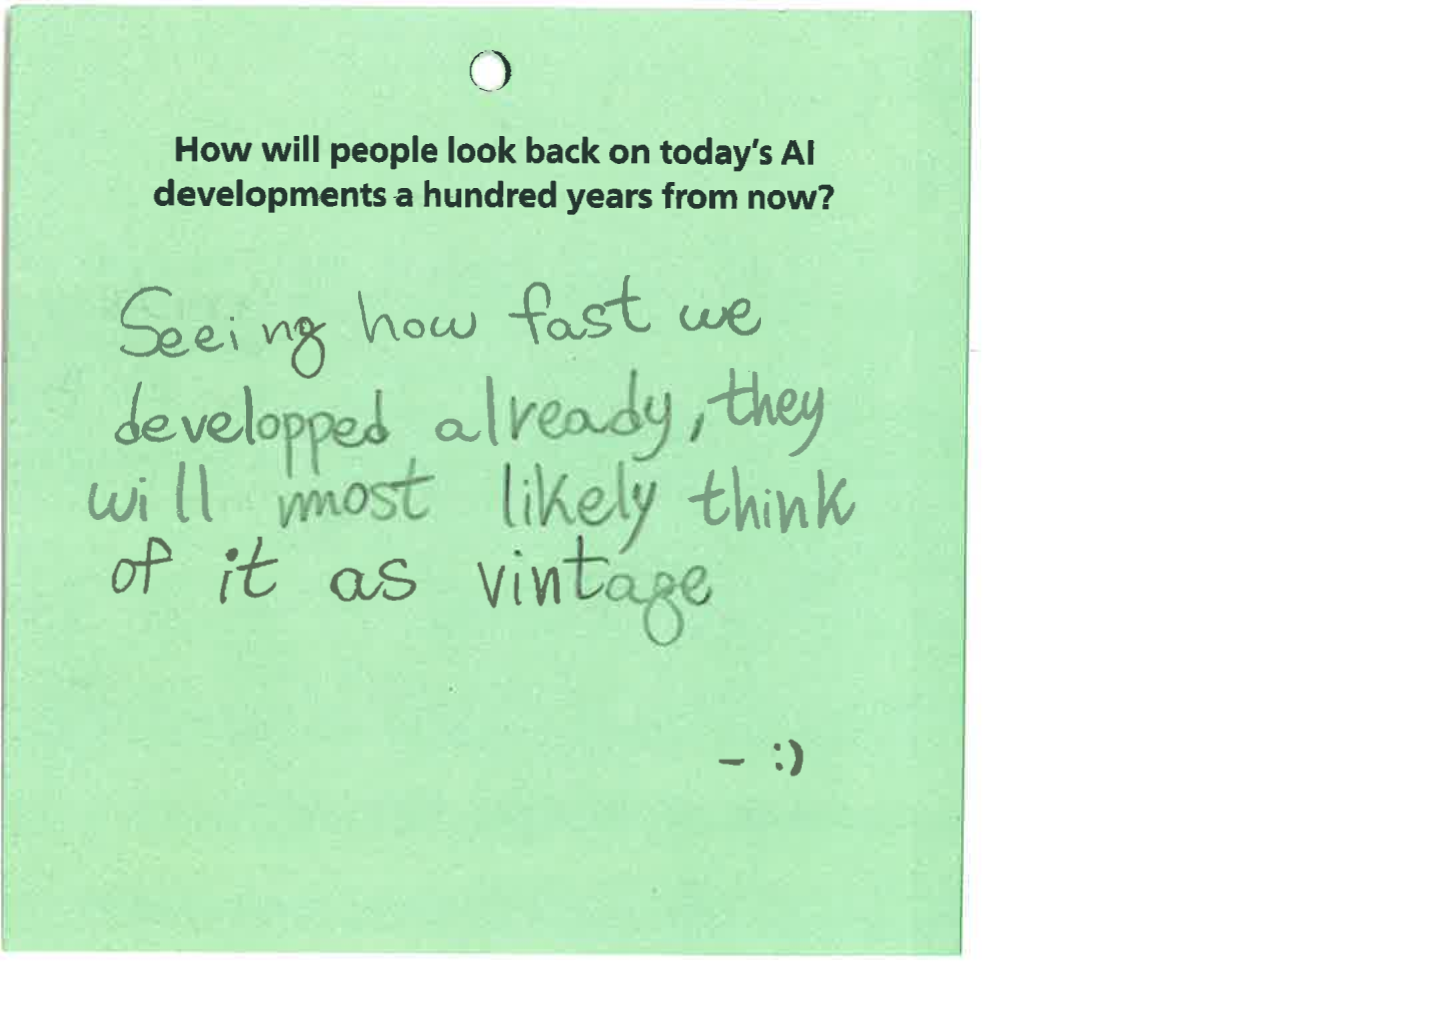 How will people look back on today's AI
developments a hundred years from now?
Seeing how fast we
developped already, they
will most likely think
of it as vintage
- :)